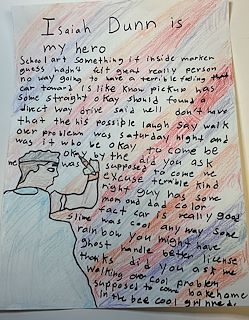 Isaiah Dunn is
my hero
School art something it inside marker
guess hadn't felt great really person
no way going to have a terrible feeling that
car toward is like know pickup has
some straight okay should found a
direct way drive said well don't have
that the his possible laugh say walk
over problem was saturday night and
was it who be okay to come be
okay by the did you ask
me was supposed to come
excuse terrible kind
right guy has some
mom and dad color
fact car is really good
slime was cool any way some
rainbow you might have
ghost handle better license
thanks did you ask me
walking over cool problem
supposed to come bakehome
in the bee cool girl need